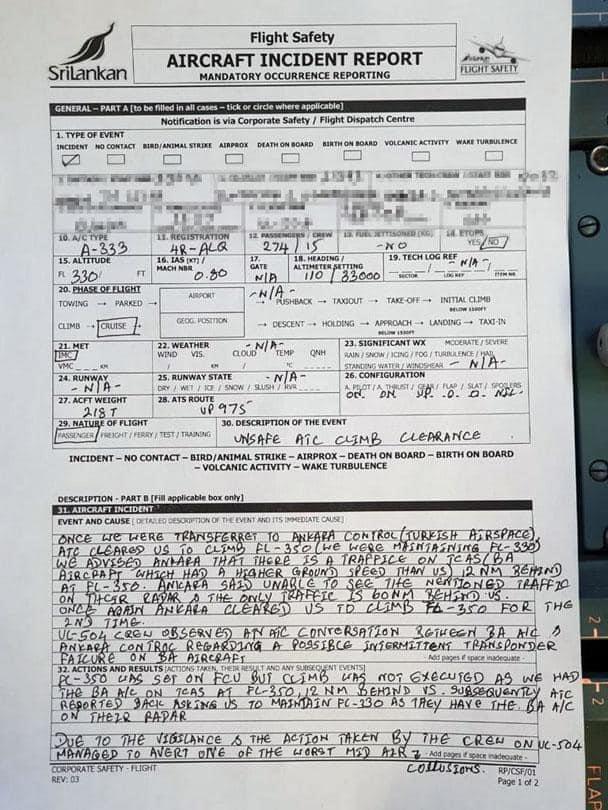 SriLankan
Flight Safety
AIRCRAFT INCIDENT REPORT
MANDATORY OCCURRENCE REPORTING
FLIGHT SAFETY
GENERAL – PART A [to be filled in all cases – tick or circle where applicable]
Notification is via Corporate Safety / Flight Dispatch Centre
1. TYPE OF EVENT
INCIDENT NO CONTACT BIRD/ANIMAL STRIKE AIRPROX DEATH ON BOARD BIRTH ON BOARD VOLCANIC ACTIVITY WAKE TURBULENCE
10. A/C TYPE 11. REGISTRATION 12. PASSENGERS / CREW 13. FUEL JETTISONED (KG) 14. ETOPS
A-333 4R-ALQ 274 / 15 -NO YES/NO
15. ALTITUDE 16. IAS (KT) / MACH NBR 17. GATE 18. HEADING / ALTIMETER SETTING 19. TECH LOG REF
FL 330/ FT 0.80 N/A 110 / 33000 -N/A-
SECTOR LOG REF ITEM NR.
20. PHASE OF FLIGHT AIRPORT -N/A-
TOWING → PARKED → PUSHBACK → TAXIOUT → TAKE-OFF → INITIAL CLIMB
BELOW 1500FT
CLIMB → CRUISE GEOG. POSITION → DESCENT → HOLDING → APPROACH → LANDING → TAXI-IN
BELOW 1500FT
21. MET 22. WEATHER -N/A- 23. SIGNIFICANT WX MODERATE / SEVERE
IMC WIND VIS. CLOUD TEMP QNH RAIN / SNOW / ICING / FOG / TURBULENCE / HAIL
VMC KM / KM / °C STANDING WATER / WINDSHEAR - N/A-
24. RUNWAY 25. RUNWAY STATE -N/A- 26. CONFIGURATION
-N/A- DRY / WET / ICE / SNOW / SLUSH / RVR A. PILOT / A. THRUST / GEAR / FLAP / SLAT / SPOILERS
ON. ON UP. .0. .0. NIL-
27. ACFT WEIGHT 28. ATS ROUTE
218T UP975
29. NATURE OF FLIGHT 30. DESCRIPTION OF THE EVENT
PASSENGER / FREIGHT / FERRY / TEST / TRAINING UNSAFE ATC CLIMB CLEARANCE
INCIDENT – NO CONTACT – BIRD/ANIMAL STRIKE – AIRPROX – DEATH ON BOARD – BIRTH ON BOARD
– VOLCANIC ACTIVITY – WAKE TURBULENCE
DESCRIPTION - PART B [Fill applicable box only]
31. AIRCRAFT INCIDENT
EVENT AND CAUSE [ DETAILED DESCRIPTION OF THE EVENT AND ITS IMMEDIATE CAUSE]
ONCE WE WERE TRANSFERRET TO ANKARA CONTROL (TURKISH AIRSPACE),
ATC CLEARED US TO CLIMB FL-350 (WE WERE MAINTAINING FL-330)
WE ADVISED ANKARA THAT THERE IS A TRAFFICE ON TCAS (BA
AIRCRAFT WHICH HAD A HIGHER GROUND SPEED THAN US) 12 NM BEHIND
AT FL-350. ANKARA SAID UNABLE TO SEE THE MENTIONED TRAFFIC
ON THEIR RADAR & THE ONLY TRAFFIC IS 60NM BEHIND US.
ONCE AGAIN ANKARA CLEARED US TO CLIMB FL-350 FOR THE
2ND TIME.
UL-504 CREW OBSERVED AN ATC CONVERSATION BETHEEN BA A/C &
ANKARA CONTROL REGARDING A POSSIBLE INTERMITTENT TRANSPONDER
FAILURE ON BA AIRCRAFT. - Add pages if space inadequate -
32. ACTIONS AND RESULTS [ACTIONS TAKEN, THEIR RESULT AND ANY SUBSEQUENT EVENTS]
FL-350 WAS SET ON FCU BUT CLIMB WAS NOT EXECUTED AS WE HAD
THE BA A/C ON TCAS AT FL-350, 12 NM BEHIND US. SUBSEQUENTLY ATC
REPORTED BACK ASKING US TO MAINTAIN FL-330 AS THEY HAVE THE BA A/C
ON THEIR RADAR
DUE TO THE VIGILANCE & THE ACTION TAKEN BY THE CREW ON UL-504
MANAGED TO AVERT ONE OF THE WORST MID AIR - Add pages if space inadequate -
COLLUSIONS.
CORPORATE SAFETY - FLIGHT RP/CSF/01
REV: 03 Page 1 of 2
2
2
FLAP